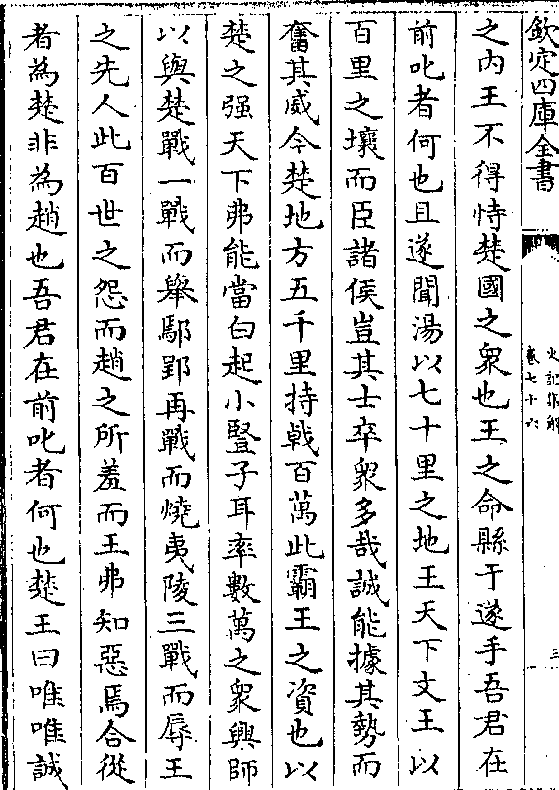 欽定四庫全書
史記集解
卷七十六
三
之內王不得恃楚國之衆也王之命縣于遂手吾君在
前叱者何也且遂聞湯以七十里之地王天下文王以
百里之壤而臣諸侯豈其士卒衆多哉誠能據其勢而
奮其威今楚地方五千里持戟百萬此霸王之資也以
楚之强天下弗能當白起小豎子耳率數萬之衆興師
以與楚戰一戰而舉鄢郢再戰而燒夷陵三戰而辱王
之先人此百世之怨而趙之所羞而王弗知惡焉合從
者為楚非為趙也吾君在前叱者何也楚王曰唯唯誠